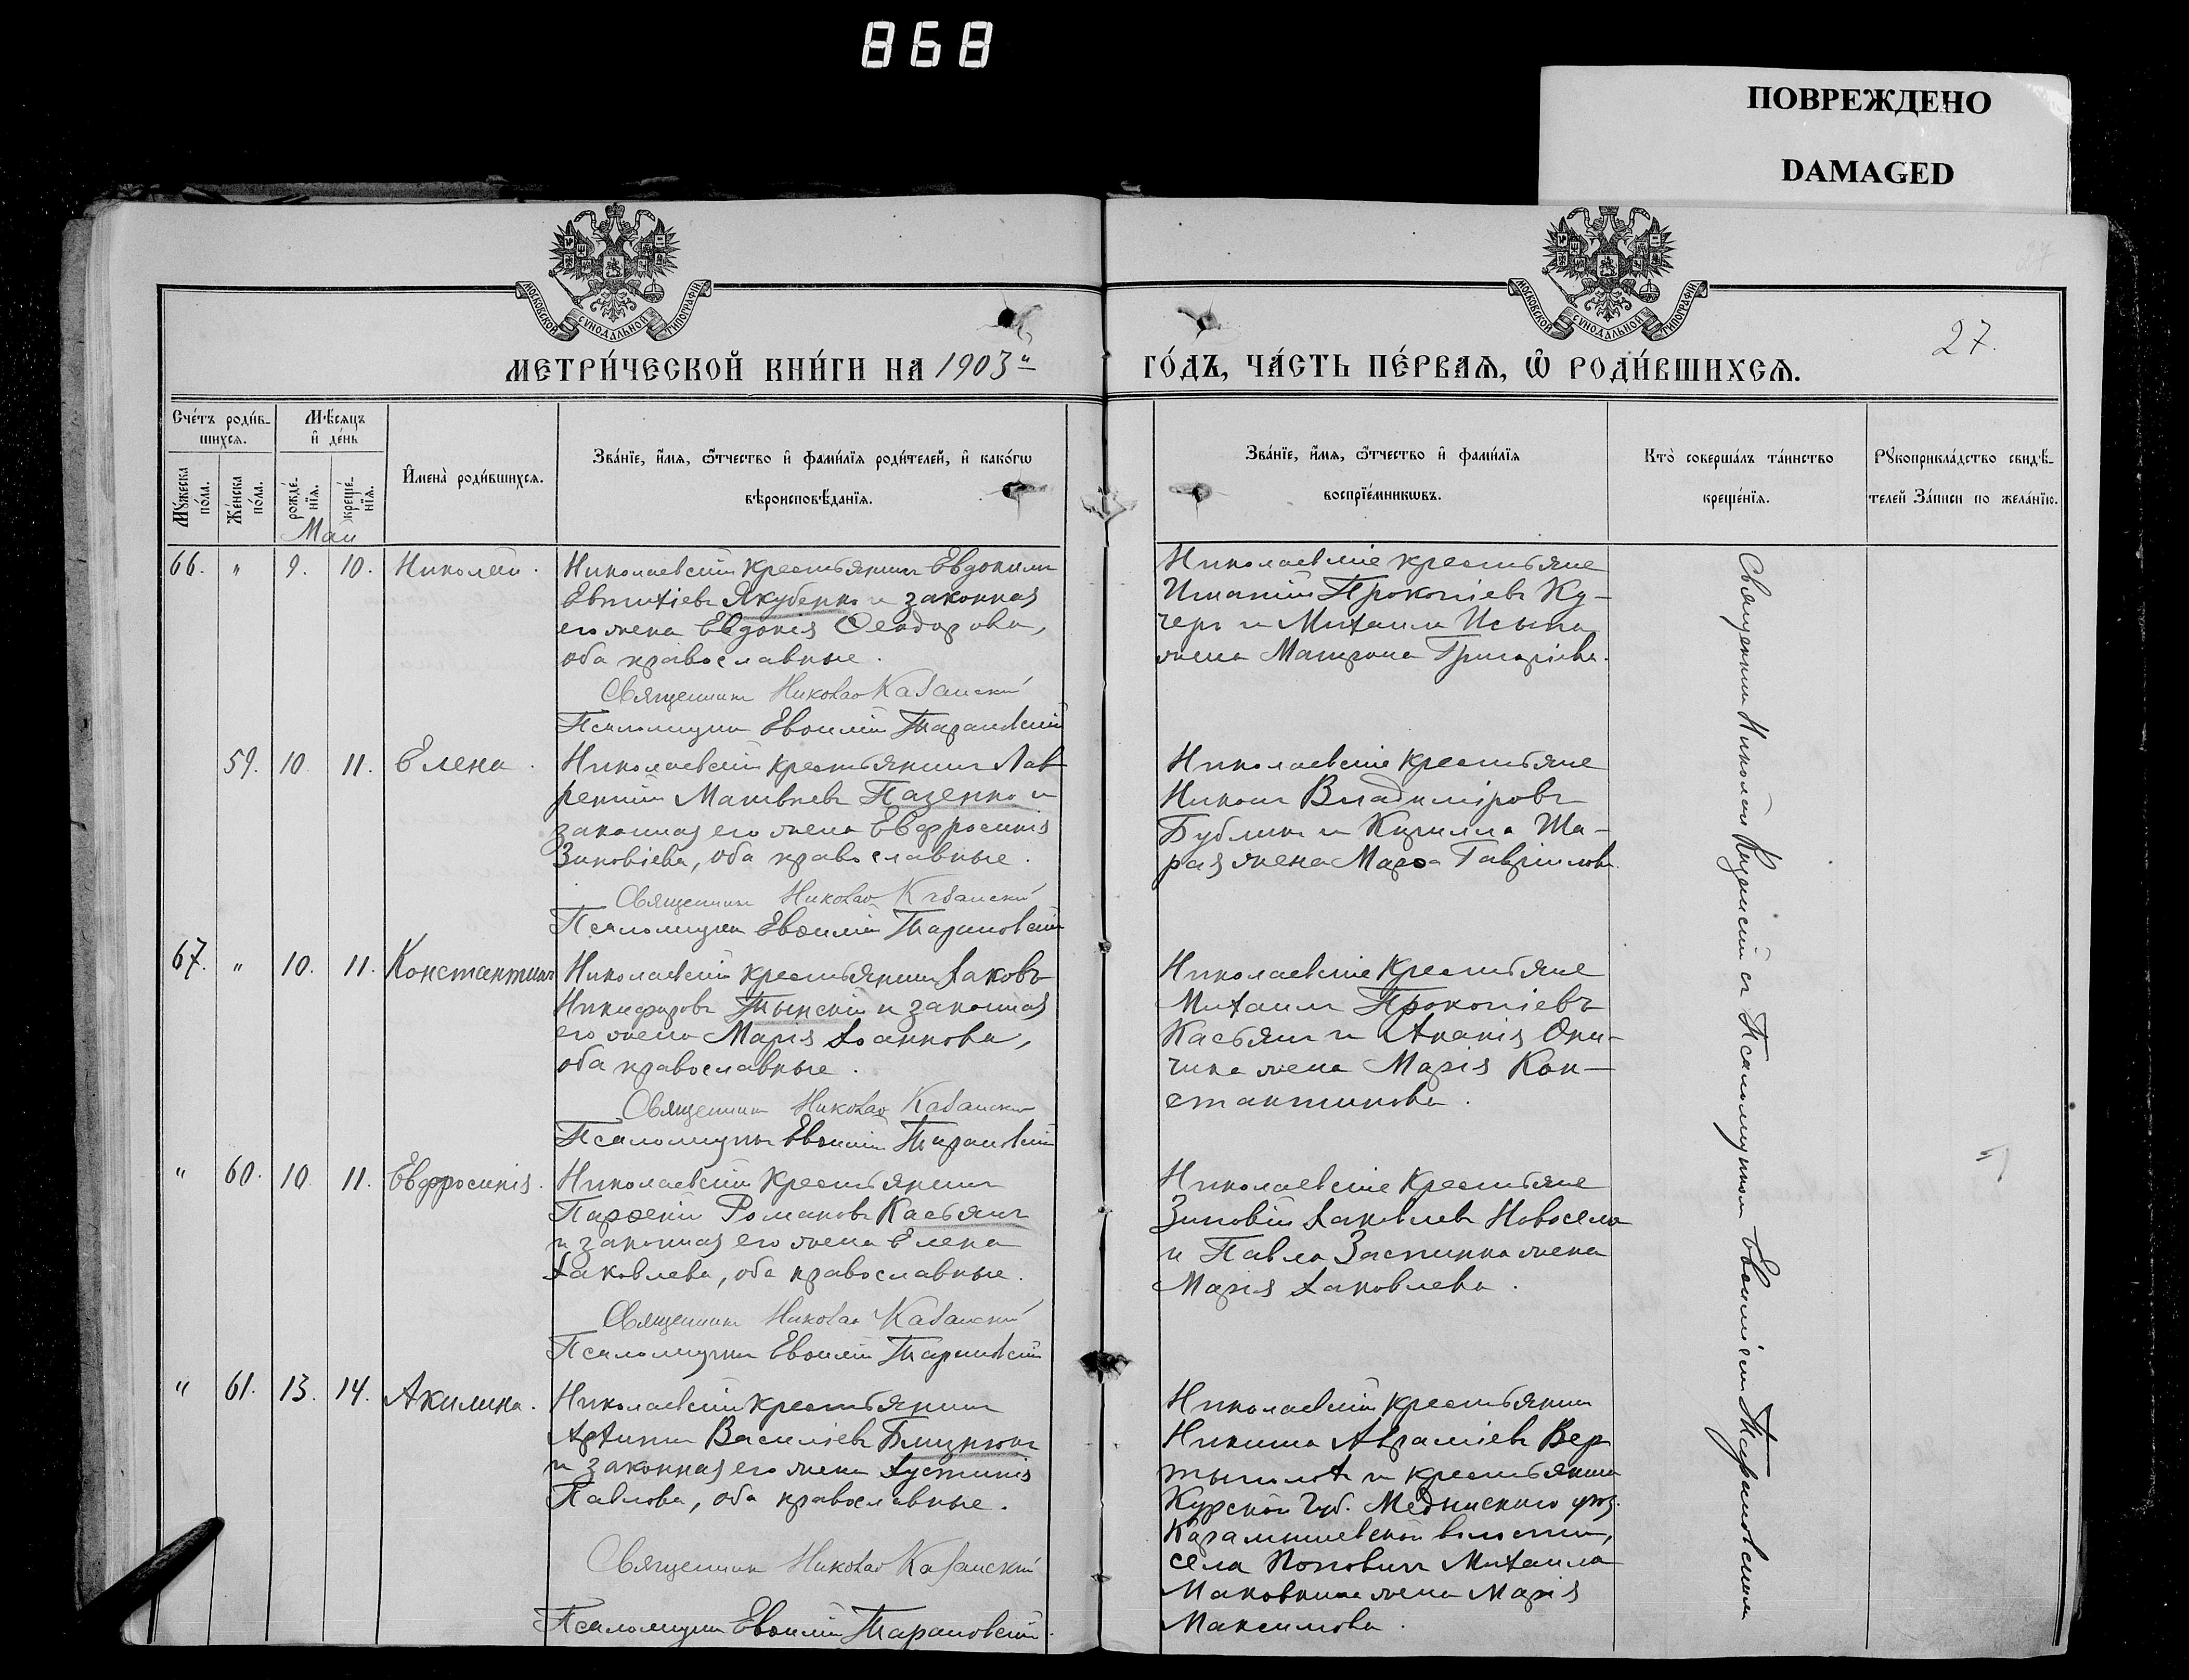 868
ПОВРЕЖДЕНО
DAMAGED
МОСКОВСКОЙ СѴНОДАЛЬНОЙ ТИПОГРАФІИ
МОСКОВСКОЙ СѴНОДАЛЬНОЙ ТИПОГРАФІИ
27.
МЕТРИ́ЧЕСКОЙ КНИ́ГИ НА 1903й
ГО́ДЪ, ЧА́СТЬ ПЕ́РВАѦ, Ѽ РОДИ́ВШИХСѦ.
Сче́тъ роди́в-
шихсѧ.
Мѣ́сѧцъ
и҆ де́нь
Мꙋжеска
по́ла.
Же́нска
по́ла.
рожде́-
нїѧ.
креще́-
нїѧ.
И҆мена̀ роди́вшихсѧ.
Зва́нїе, и҆́мѧ, ѻ҆́тчество и҆ фами́лїѧ роди́телей, и҆ како́гѡ
вѣроисповѣ́данїѧ.
Зва́нїе, и҆́мѧ, ѻ҆́тчество и҆ фами́лїѧ
воспрїе́мникѡвъ.
Кто̀ соверша́лъ та́инство
креще́нїѧ.
Рꙋкоприкла́дство свидѣ́-
телей За́писи по жела́нїю.
Маи
66. " 9. 10. Николай.
Николаевскій крестьянинъ Евдокимъ
Евтихіевъ Якубенко и законная
его жена Евдокія Ѳеодорова,
оба православные.
Священникъ Николай Казанскій
Псаломщикъ Евѳимій Тарановскій
Николаевскіе крестьяне
Игнатій Прокопіевъ Ку-
черъ и Михаила Исыпа
жена Матрона Григоріева.
59. 10. 11. Елена.
Николаевскій крестьянинъ Лав
рентій Матвѣевъ Пазенко и
законная его жена Евфросинія
Зиновіева, оба православные.
Священникъ Николай Казанскій
Псаломщикъ Евѳимій Тарановскій
Николаевскіе крестьяне
Никонъ Владиміровъ
Бубликъ и Кирилла Ша-
рая жена Марѳа Гавріилова.
67. " 10. 11. Константинъ
Николаевскій крестьянинъ Іаковъ
Никифоровъ Тынскій и законная
его жена Марія Іоаннова,
оба православные.
Священникъ Николай Казанскій
Псаломщикъ Евѳимій Тарановскій
Николаевскіе крестьяне
Михаилъ Прокопіевъ
Касьянъ и Ананія Они-
чика жена Марія Кон-
стантинова.
" 60. 10. 11. Евфросинія.
Николаевскій крестьянинъ
Парѳеній Романовъ Касьянъ
и законная его жена Елена
Іаковлева, оба православные.
Священникъ Николай Казанскій
Псаломщикъ Евѳимій Тарановскій
Николаевскіе крестьяне
Зиновій Іаковлевъ Новосела
и Павла Застинка жена
Марія Іаковлева.
" 61. 13. 14. Акилина.
Николаевскій крестьянинъ
Архипъ Василіевъ Блицнюкъ
и законная его жена Іустинія
Павлова, оба православные.
Священникъ Николай Казанскій
Псаломщикъ Евѳимій Тарановскій.
Николаевскій крестьянинъ
Никита Авраміевъ Вер
тыполохъ и крестьянина
Курской губ.
волости,
села Поповки Михаила
Маковкина жена Марія
Максимова.
Священникъ Николай Казанскій съ Псаломщикомъ Евѳиміемъ Тарановскимъ